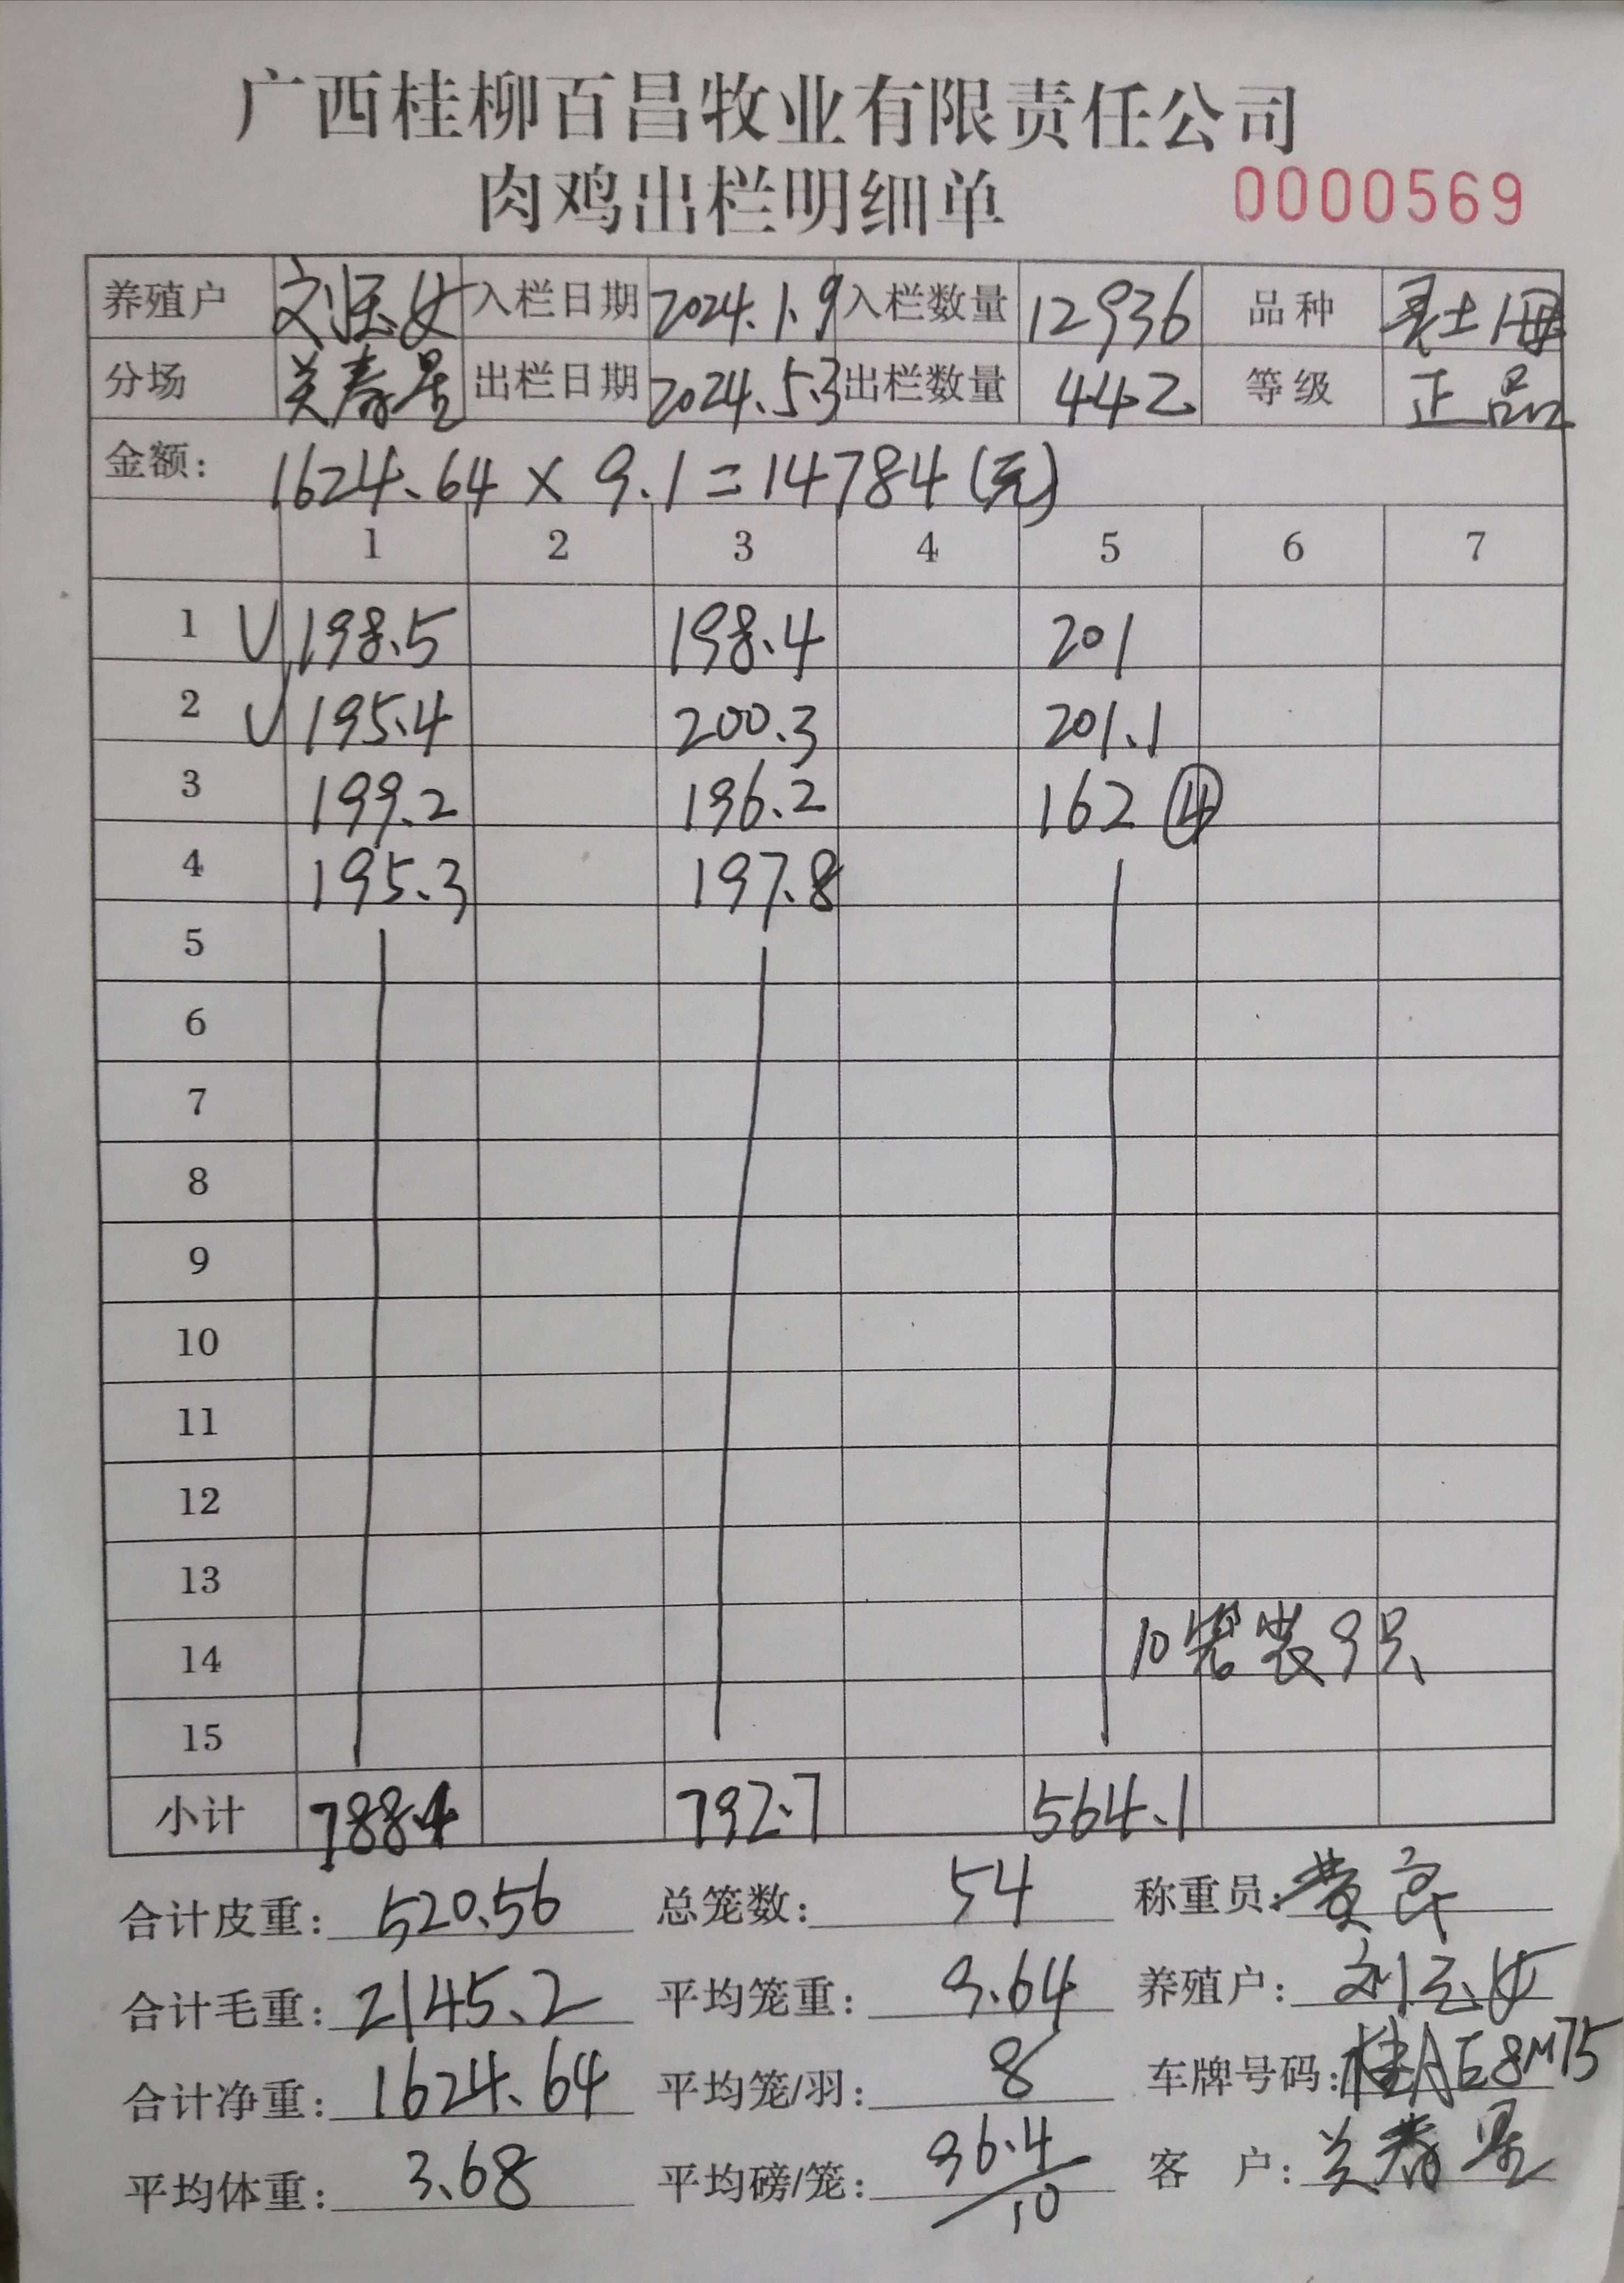 广西桂柳百昌牧业有限责任公司
肉鸡出栏明细单 0000569
养殖户 刘玉女 入栏日期 2024.1.9 入栏数量 12936 品种 土1母
分场 关春星 出栏日期 2024.5.3 出栏数量 442 等级 正品
金额: 1624.64 × 9.1=14784(元)
1 2 3 4 5 6 7
1 198.5 198.4 201
2 195.4 200.3 201.1
3 199.2 196.2 162 ④
4 195.3 197.8
5
6
7
8
9
10
11
12
13
14 10笼装9只
15
小计 788.4 792.7 564.1
合计皮重: 520.56 总笼数: 54 称重员: 黄
合计毛重: 2145.2 平均笼重: 9.64 养殖户: 刘玉女
合计净重: 1624.64 平均笼/羽: 8 车牌号码: 桂AE8M75
平均体重: 3.68 平均磅/笼: 96.4/10 客户: 关春星